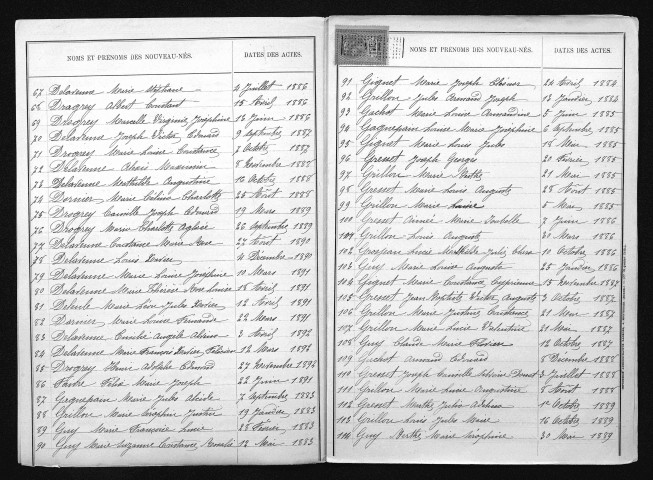 NOMS ET PRENOMS DES NOUVEAU-NÉS. DATES DES ACTES.
67 Delavenne Marie Stéphane 4 Juillet 1886
68 Drogrey Albert Constant 15 Avril 1886
69 Drogrey Marcelle Virginie Joséphine 13 Juin 1886
70 Delavenne Joseph Victor Edouard 9 Septembre 1887
71 Drogrey Marie Louise Constance 7 Octobre 1887
72 Delavenne Alexis Maximin 8 Novembre 1888
73 Delavenne Mathilde Augustine 10 Octobre 1888
74 Dornier Marie Célina Charlotte 25 Août 1888
75 Drogrey Camille Joseph Edouard 19 Mars 1889
76 Drogrey Marie Charlotte Aglaée 26 Septembre 1889
77 Delavenne Constance Marie 27 Août 1890
78 Delavenne Louis 4 Décembre 1890
79 Delavenne Marie Louise Joséphine 10 Mars 1891
80 Delavenne Marie Rose Louise 18 Avril 1891
81 Marie Léon Jules 12 Avril 1891
82 Dornier Marie Louise Fernande 22 Mars 1891
83 Delavenne Angèle 3 Avril 1892
84 Delavenne Marie François 12 Mars 1892
85 Drogrey Adolphe Edouard 27 Novembre 1892
86 Félix Marie Joseph 22 Juin 1891
87 Gagnepain Marie Jules 7 Septembre 1883
88 Grillon Marie Joséphine Justine 19 Janvier 1883
89 Guy Marie Françoise 28 Février 1883
90 Guy Marie Suzanne Constance 12 Mai 1883
NOMS ET PRENOMS DES NOUVEAU-NÉS. DATES DES ACTES.
91 Gignet Marie Joseph 24 Avril 1884
92 Grillon Jules Armand Joseph 13 Janvier 1884
93 Guichot Marie Louise Amandine 5 Juin 1885
94 Gagnepain Louise Marie Joséphine 6 Septembre 1885
95 Gignet Marie Louis Jules 18 Mai 1885
96 Gresset Joseph Georges 21 Février 1885
97 Grillon Marie Berthe 21 Mars 1885
98 Gresset Marie Louis Auguste 28 Août 1885
99 Grillon Marie Louise 5 Mai 1885
100 Gresset Aimée Marie Isabelle 2 Juin 1886
101 Grillon Louis Auguste 30 Mars 1886
102 Louise Mathilde Julie 10 Octobre 1886
103 Guy Marie Louise Auguste 25 Janvier 1886
104 Gignet Marie Constance Cyprienne 15 Novembre 1887
105 Gresset Jean Baptiste Victor Auguste 3 Octobre 1887
106 Grillon Marie Justine Constance 21 Mai 1887
107 Grillon Marie Lucie Valentine 21 Mai 1887
108 Guy Claude Marie 12 Octobre 1887
109 Guichot Armand Edouard 8 Décembre 1888
110 Gresset Joseph Camille 3 Juillet 1888
111 Grillon Marie Louise Augustine 8 Août 1888
112 Gresset Marthe Julie 1er Octobre 1889
113 Grillon Louis Jules Marie 16 Octobre 1889
114 Guy Berthe Marie Joséphine 30 Mai 1889